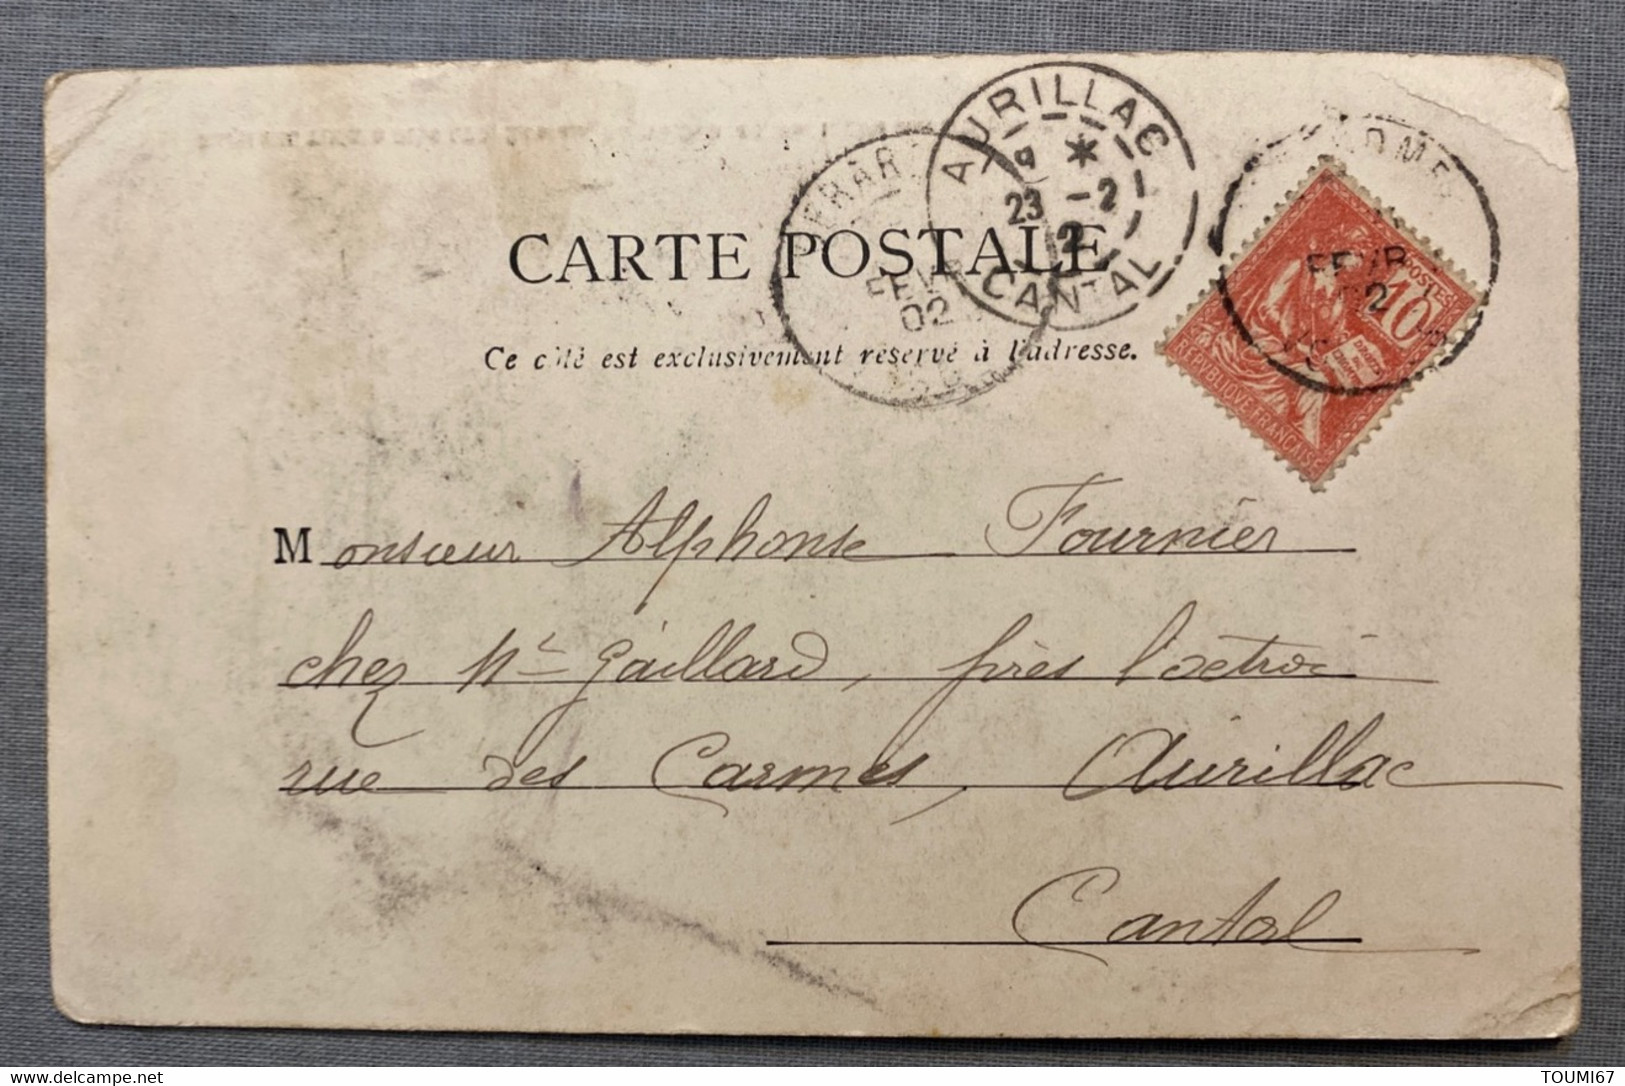 AURILLAC
23 -2
2
CANTAL
FEVR
02
FEVR
02
CARTE POSTALE
Ce côté est exclusivement réservé à l'adresse.
POSTES
10
REPUBLIQUE FRANÇAISE
Monsieur Alphonse Fournier
chez Mr Gaillard, près l'octroi
rue des Carmes, Aurillac
Cantal
TOUMI67